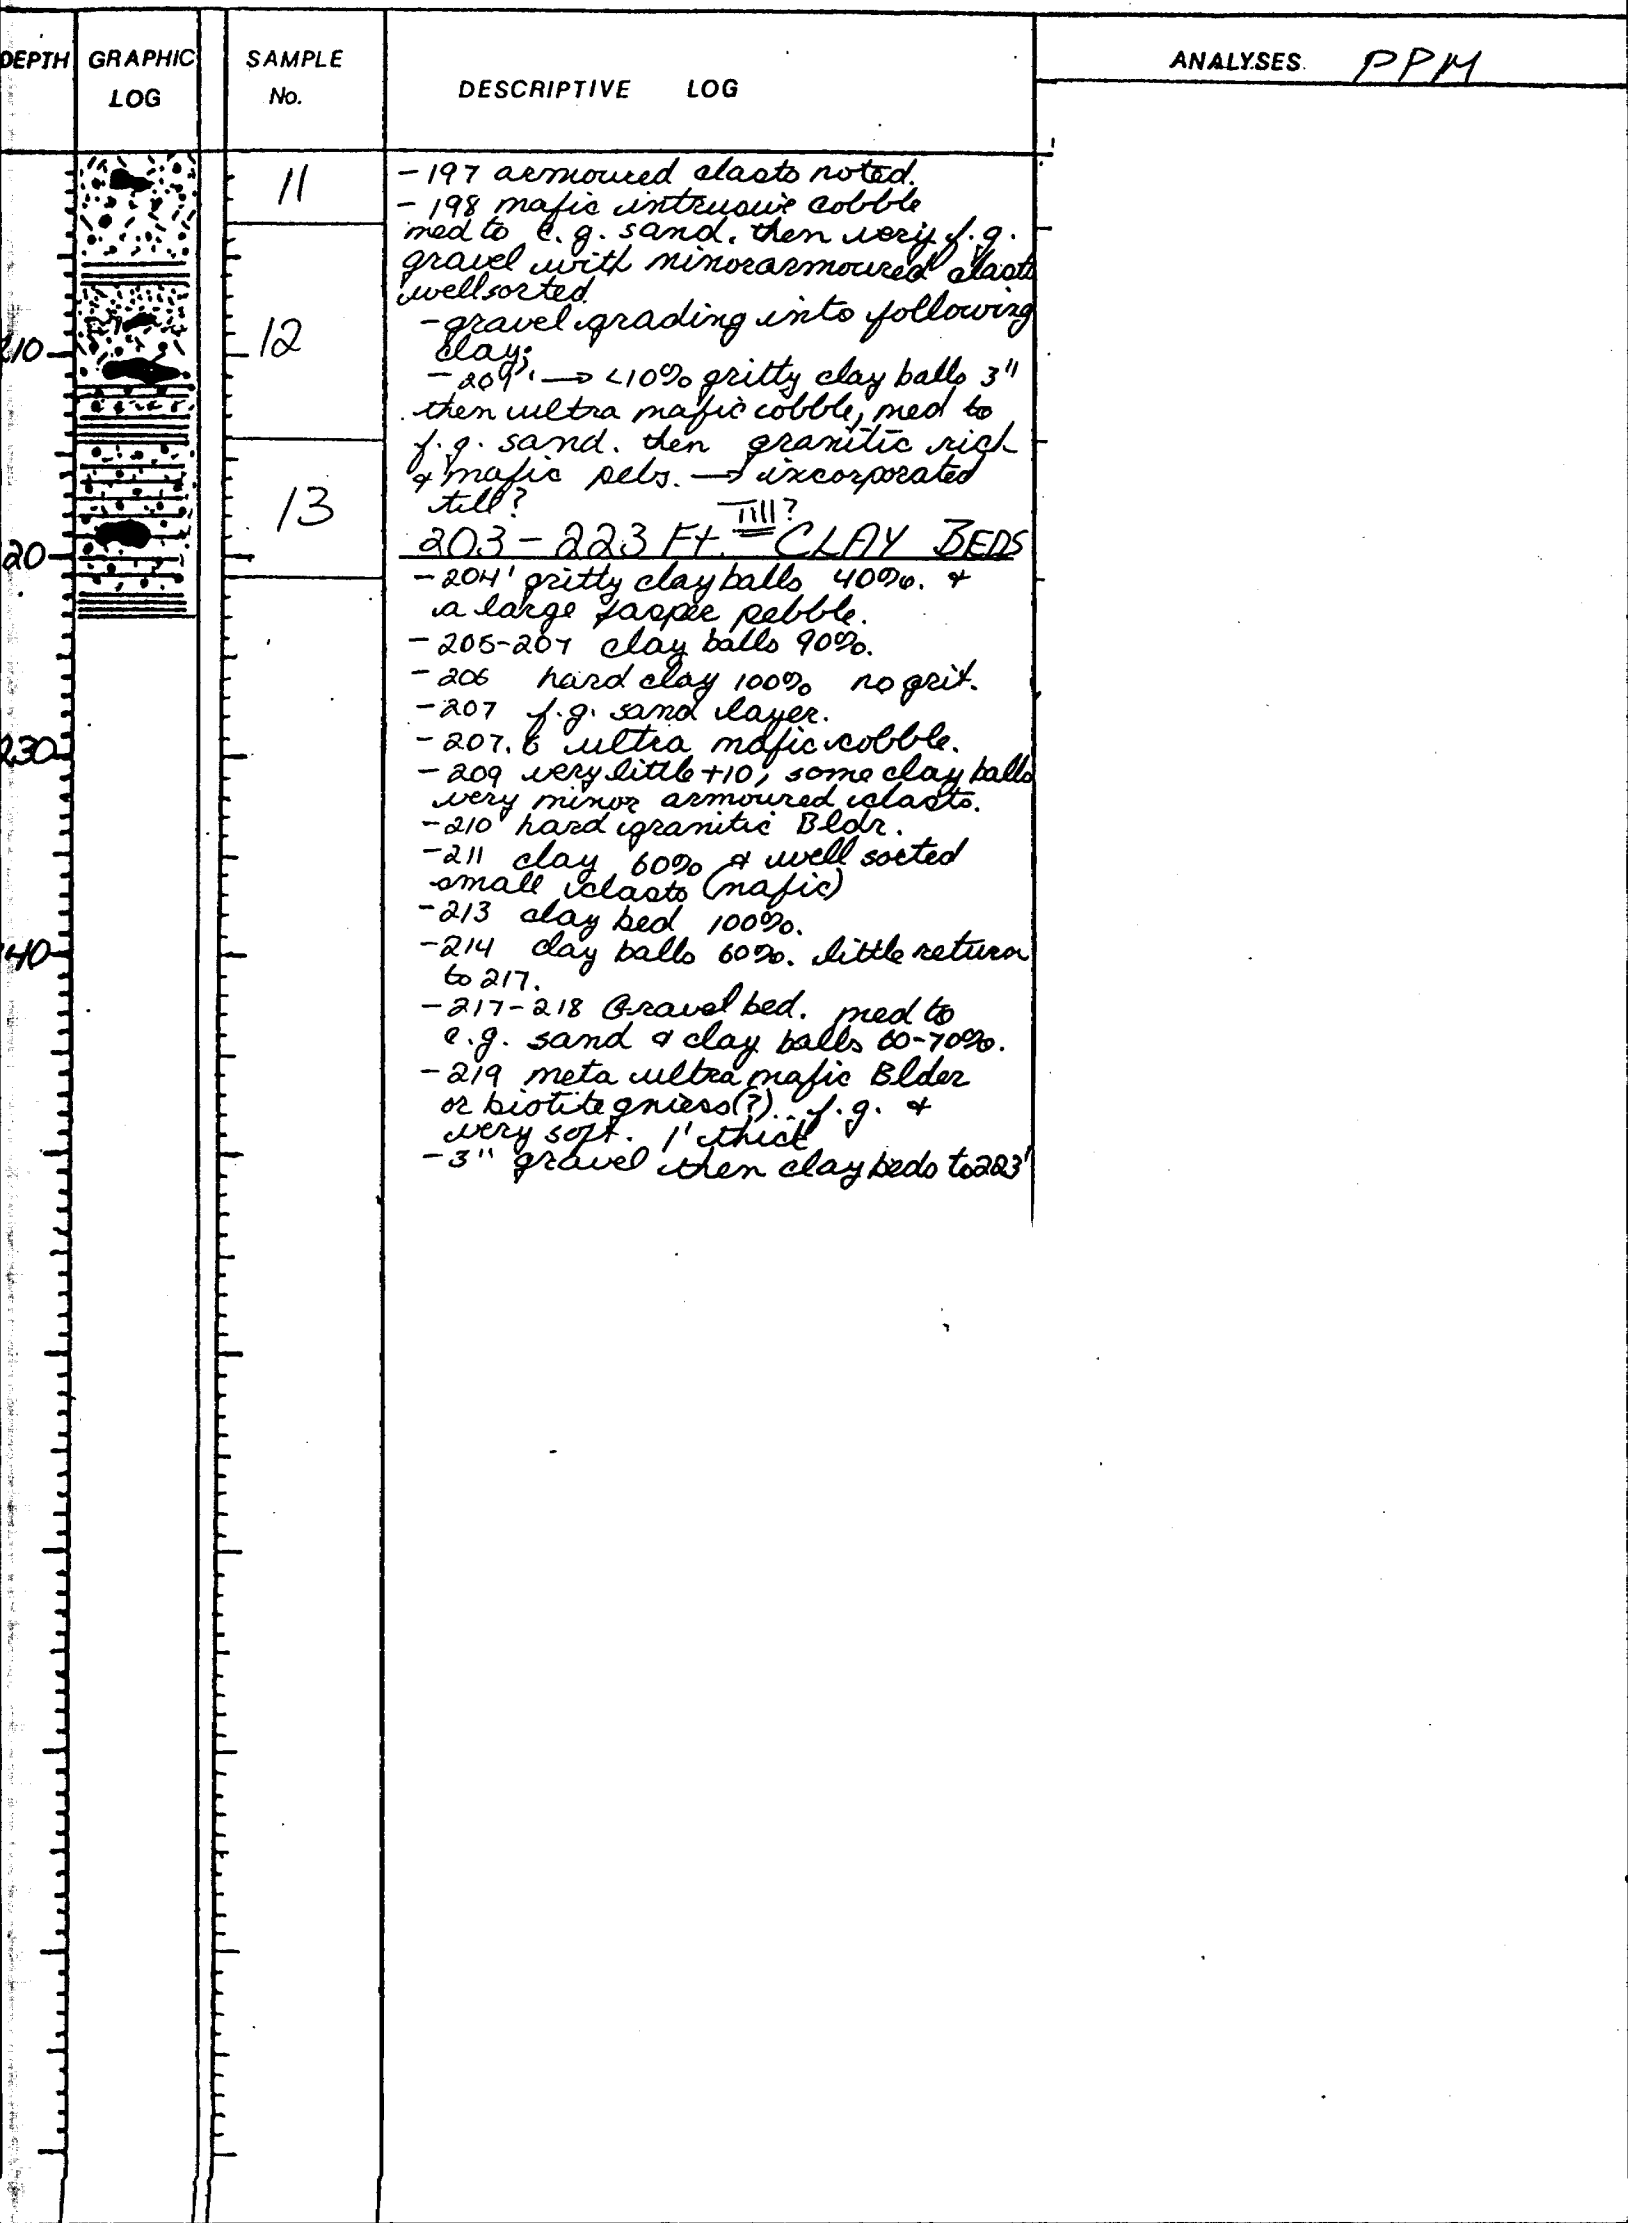 DEPTH GRAPHIC LOG SAMPLE No. DESCRIPTIVE LOG ANALYSES. PPM
11
12
13
10
20
230
40
- 197 armoured clasts noted.
- 198 mafic intrusive cobble
med to c.g. sand. then very f.g.
gravel with minor armoured clasts
well sorted.
- gravel grading into following
clay;
- 201' → <10% gritty clay balls 3"
then ultra mafic cobble, med to
f.g. sand. then granitic rich
& mafic pebs. → incorporated
till?
Till?
203 - 223 Ft. - CLAY BEDS
- 204' gritty clay balls 40%. &
a large jasper pebble.
- 205-207 clay balls 90%.
- 206 hard clay 100% no grit.
- 207 f.g. sand layer.
- 207.6 ultra mafic cobble.
- 209 very little +10, some clay balls
very minor armoured clasts.
- 210 hard granitic Bldr.
- 211 clay 60% & well sorted
small clasts (mafic)
- 213 clay bed 100%.
- 214 clay balls 60%. little return
to 217.
- 217-218 Gravel bed. med to
c.g. sand & clay balls 60-70%.
- 219 meta ultra mafic Blder
or biotite gniess(?).. f.g. &
very soft. 1' thick
- 3" gravel then clay beds to 223'